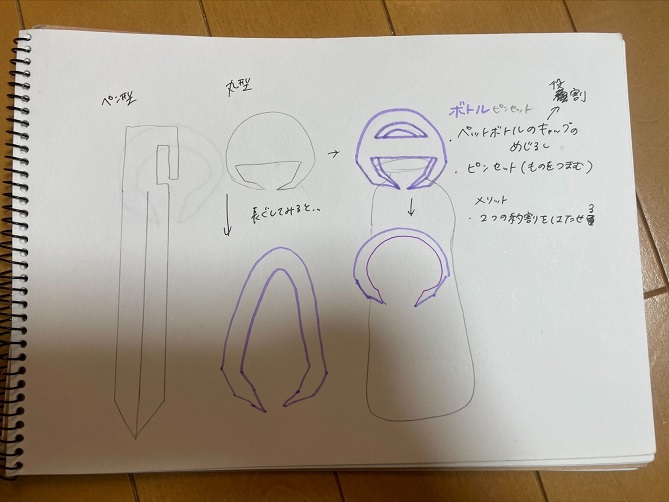 ペン型
丸型
長くしてみると..
ボトルピンセット
役割
・ペットボトルのキャップの
めじるし
・ピンセット(ものをつまむ)
メリット
・2つの役割をはたせる